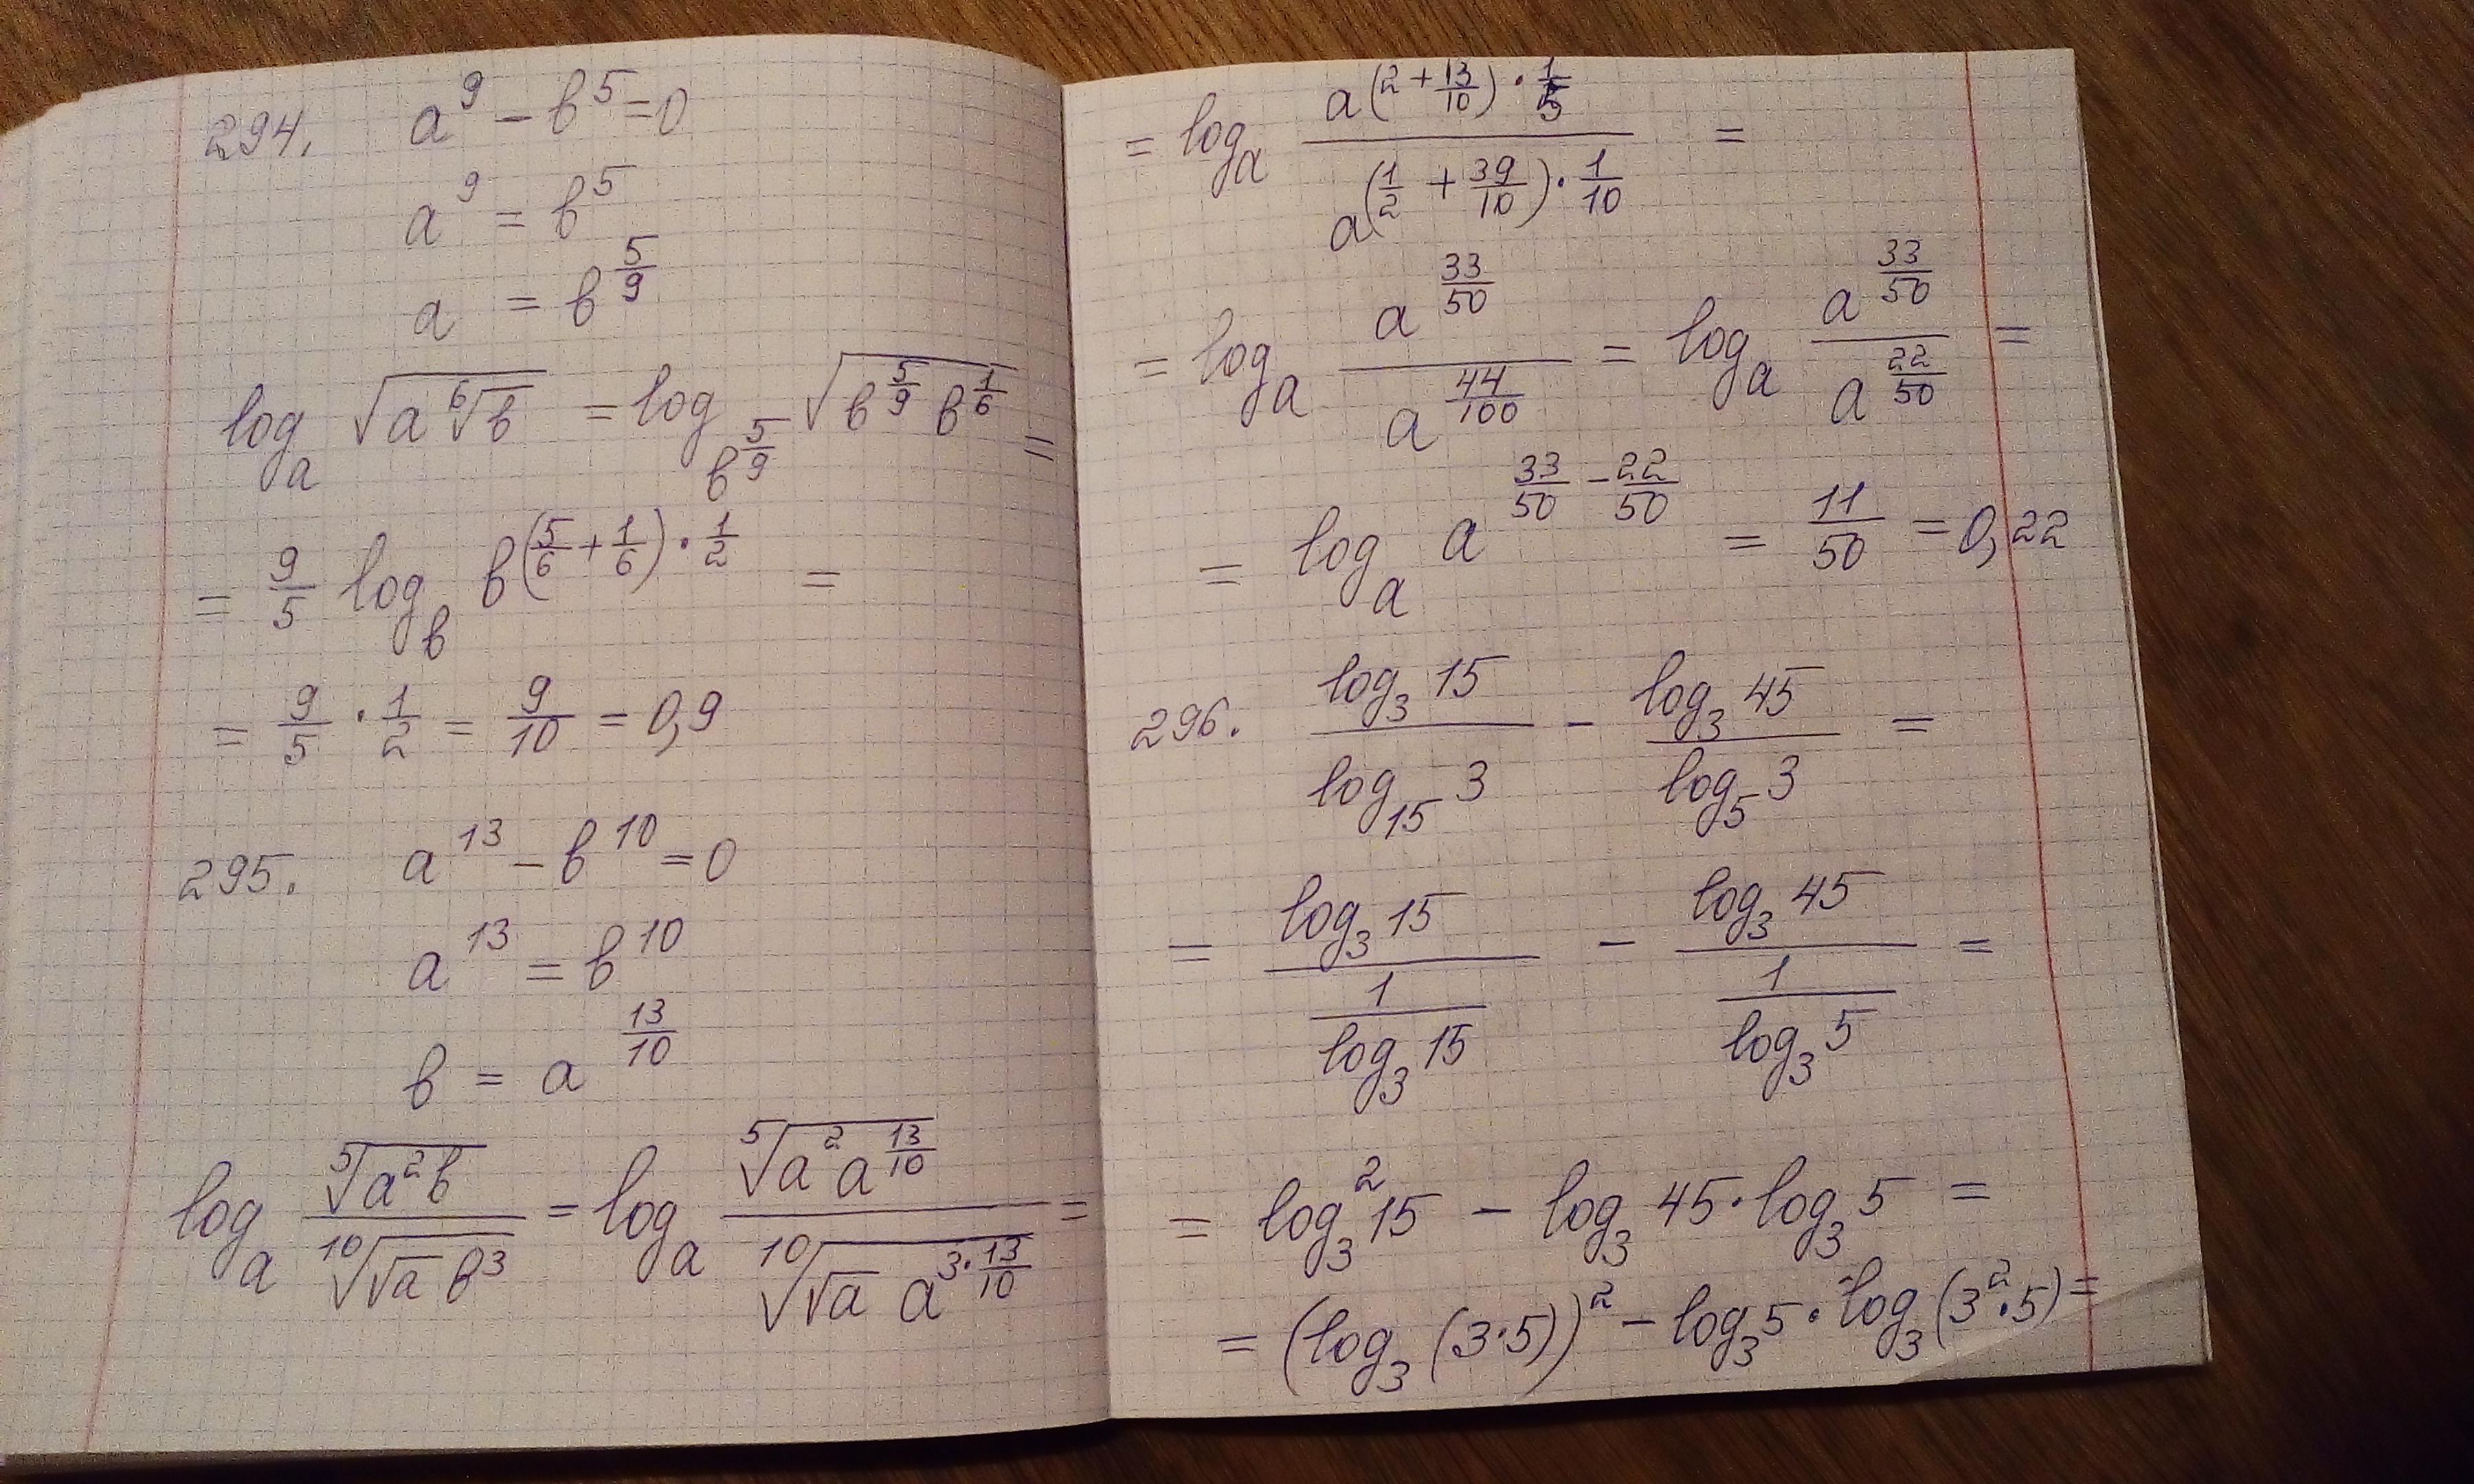 294. a⁹ − b⁵ = 0
a⁹ = b⁵
a = b^(5/9)
log_a √(a ⁶√b) = log_(b^(5/9)) √(b^(5/9) b^(1/6)) =
= 9/5 log_b b^((5/6 + 1/6) · 1/2) =
= 9/5 · 1/2 = 9/10 = 0,9
295. a¹³ − b¹⁰ = 0
a¹³ = b¹⁰
b = a^(13/10)
log_a (⁵√(a²b)) / (¹⁰√(√a b³)) = log_a (⁵√(a² a^(13/10))) / (¹⁰√(√a a^(3·13/10))) =
= log_a a^((2 + 13/10) · 1/5) / a^((1/2 + 39/10) · 1/10) =
= log_a a^(33/50) / a^(44/100) = log_a a^(33/50) / a^(22/50) =
= log_a a^(33/50 − 22/50) = 11/50 = 0,22
296. log₃ 15 / log₁₅ 3 − log₃ 45 / log₅ 3 =
= log₃ 15 / (1 / log₃ 15) − log₃ 45 / (1 / log₃ 5) =
= log₃² 15 − log₃ 45 · log₃ 5 =
= (log₃ (3·5))² − log₃ 5 · log₃ (3²·5) =